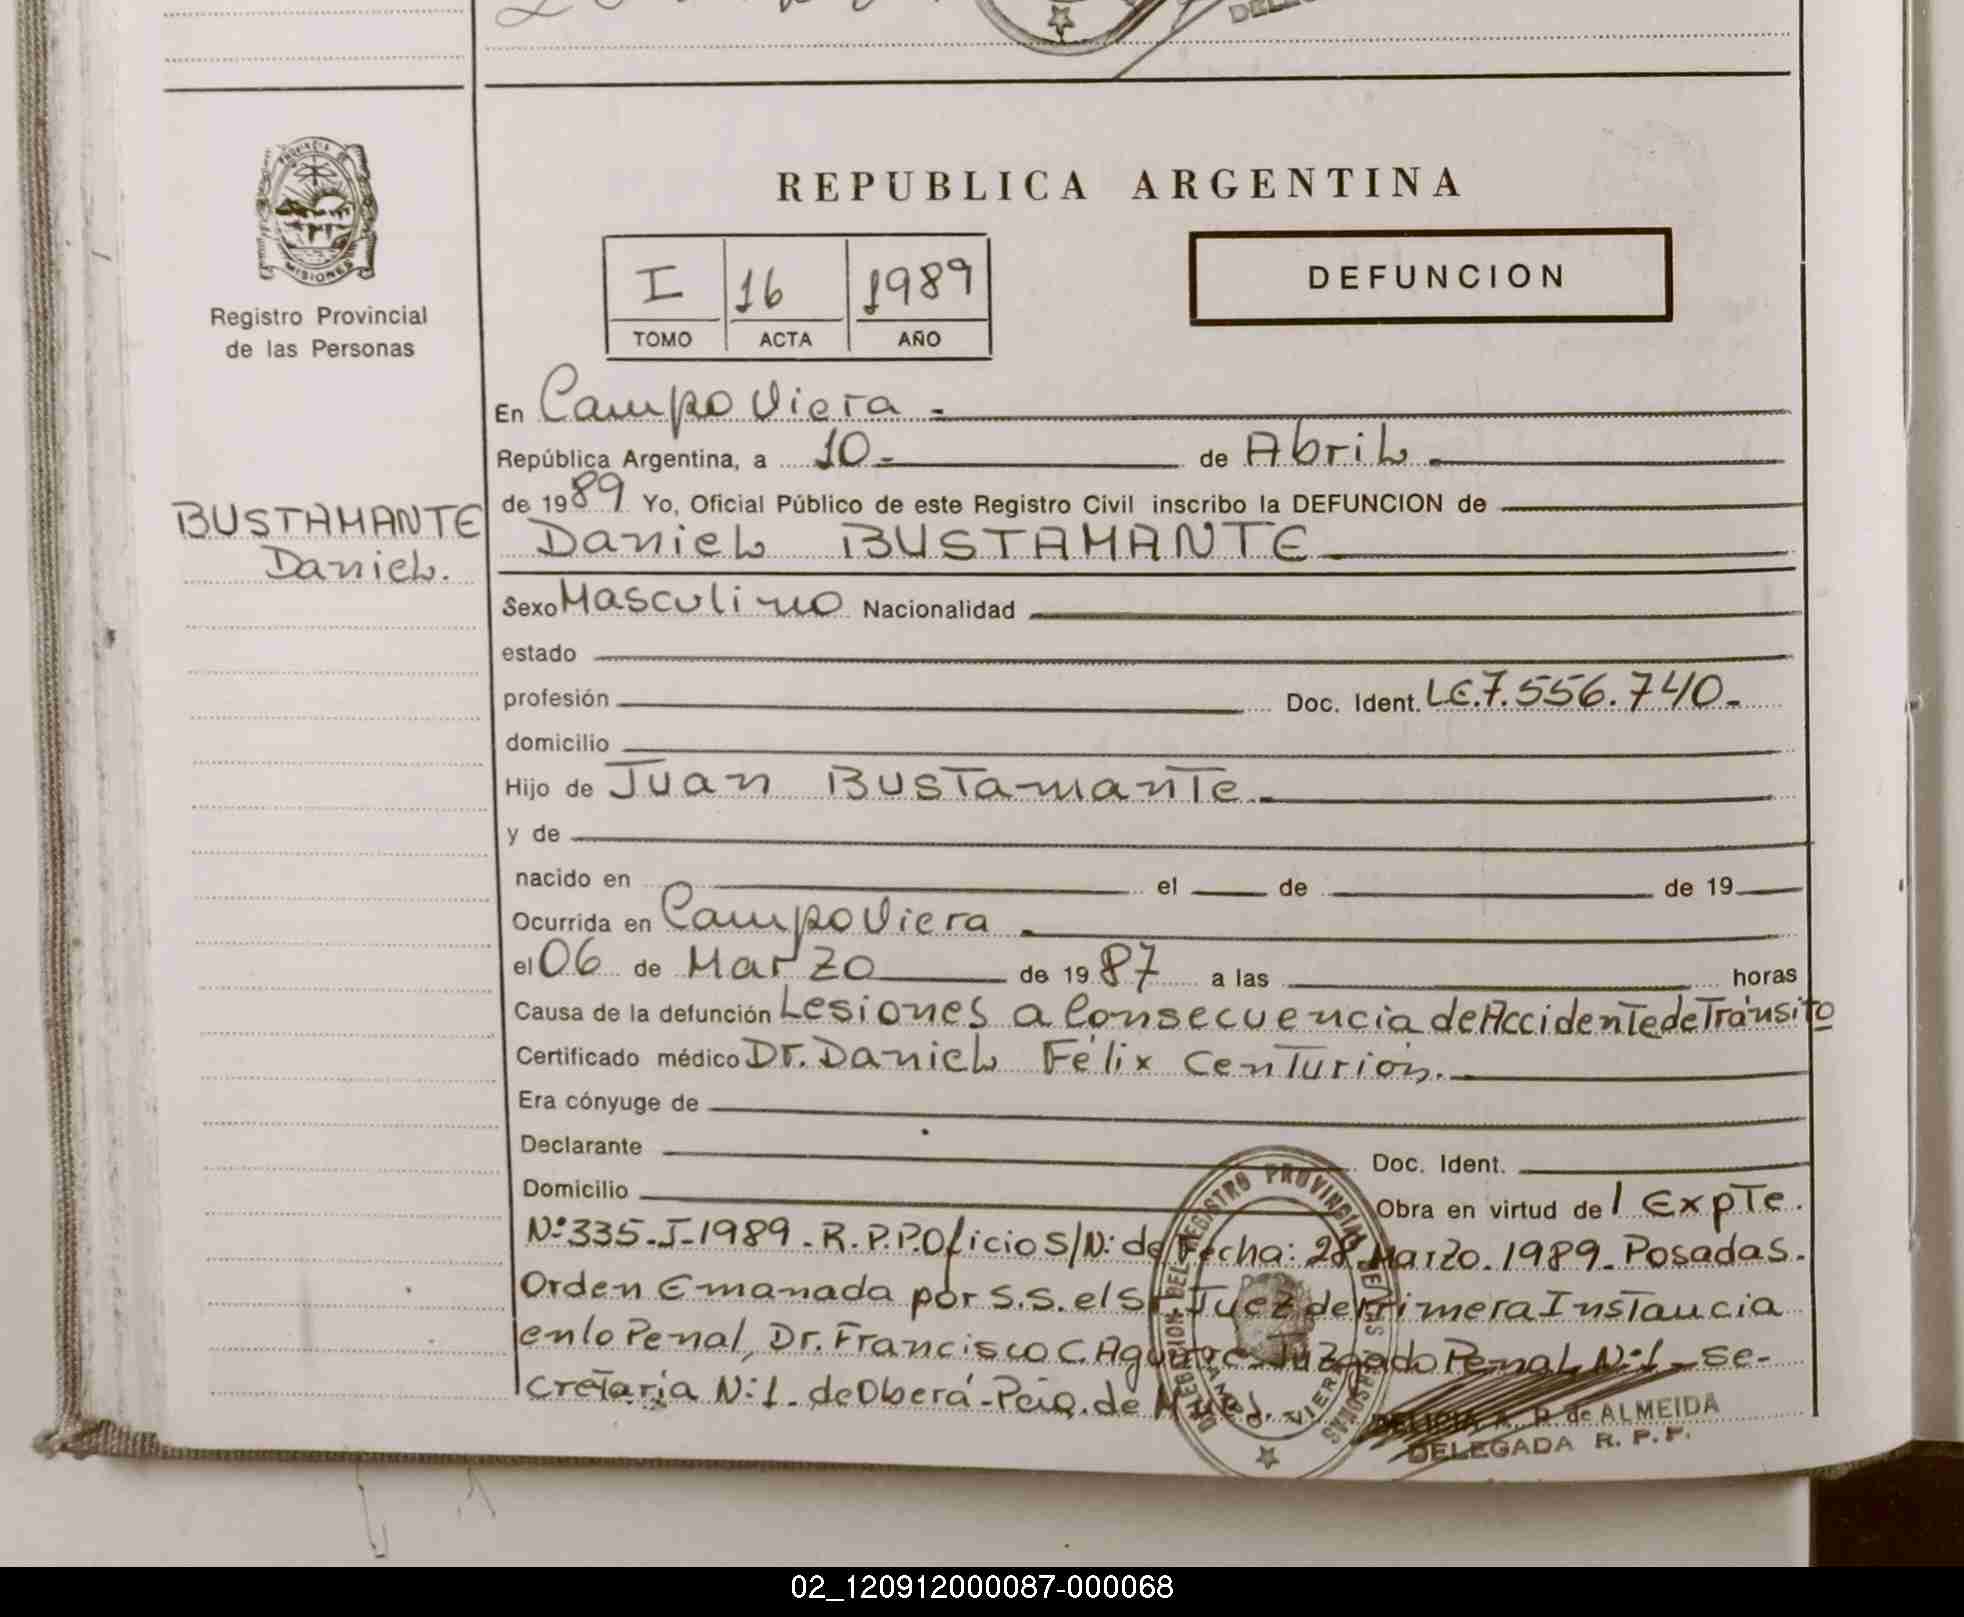 REPUBLICA ARGENTINA
DEFUNCION
PROVINCIA DE
MISIONES
Registro Provincial
de las Personas
I 16 1989
TOMO ACTA AÑO
BUSTAMANTE
Daniel.
En Campo Viera -
República Argentina, a 10- de Abril
de 1989 Yo, Oficial Público de este Registro Civil inscribo la DEFUNCION de
Daniel BUSTAMANTE
Sexo Masculino Nacionalidad
estado
profesión Doc. Ident. LE.7.556.740-
domicilio
Hijo de Juan Bustamante
y de
nacido en el de de 19
Ocurrida en Campo Viera
el 06 de Marzo de 1987 a las horas
Causa de la defunción Lesiones a Consecuencia de Accidente de Tránsito
Certificado médico Dr. Daniel Félix Centurión.
Era cónyuge de
Declarante Doc. Ident.
Domicilio Obra en virtud de Expte.
Nº335-I-1989-R.P.P. Oficio S/N: de Fecha: 28 Marzo-1989-Posadas.
Orden Emanada por S.S. el Sr. Juez de Primera Instancia
en lo Penal, Dr. Francisco C. Aguirre-Juzgado Penal Nº1-Se-
cretaría Nº1-de Oberá-Pcia. de Mnes.
DELEGACION DEL REGISTRO PROVINCIAL DE LAS PERSONAS
CAMPO VIERA
DELICIA A. R. de ALMEIDA
DELEGADA R. P. P.
02_120912000087-000068